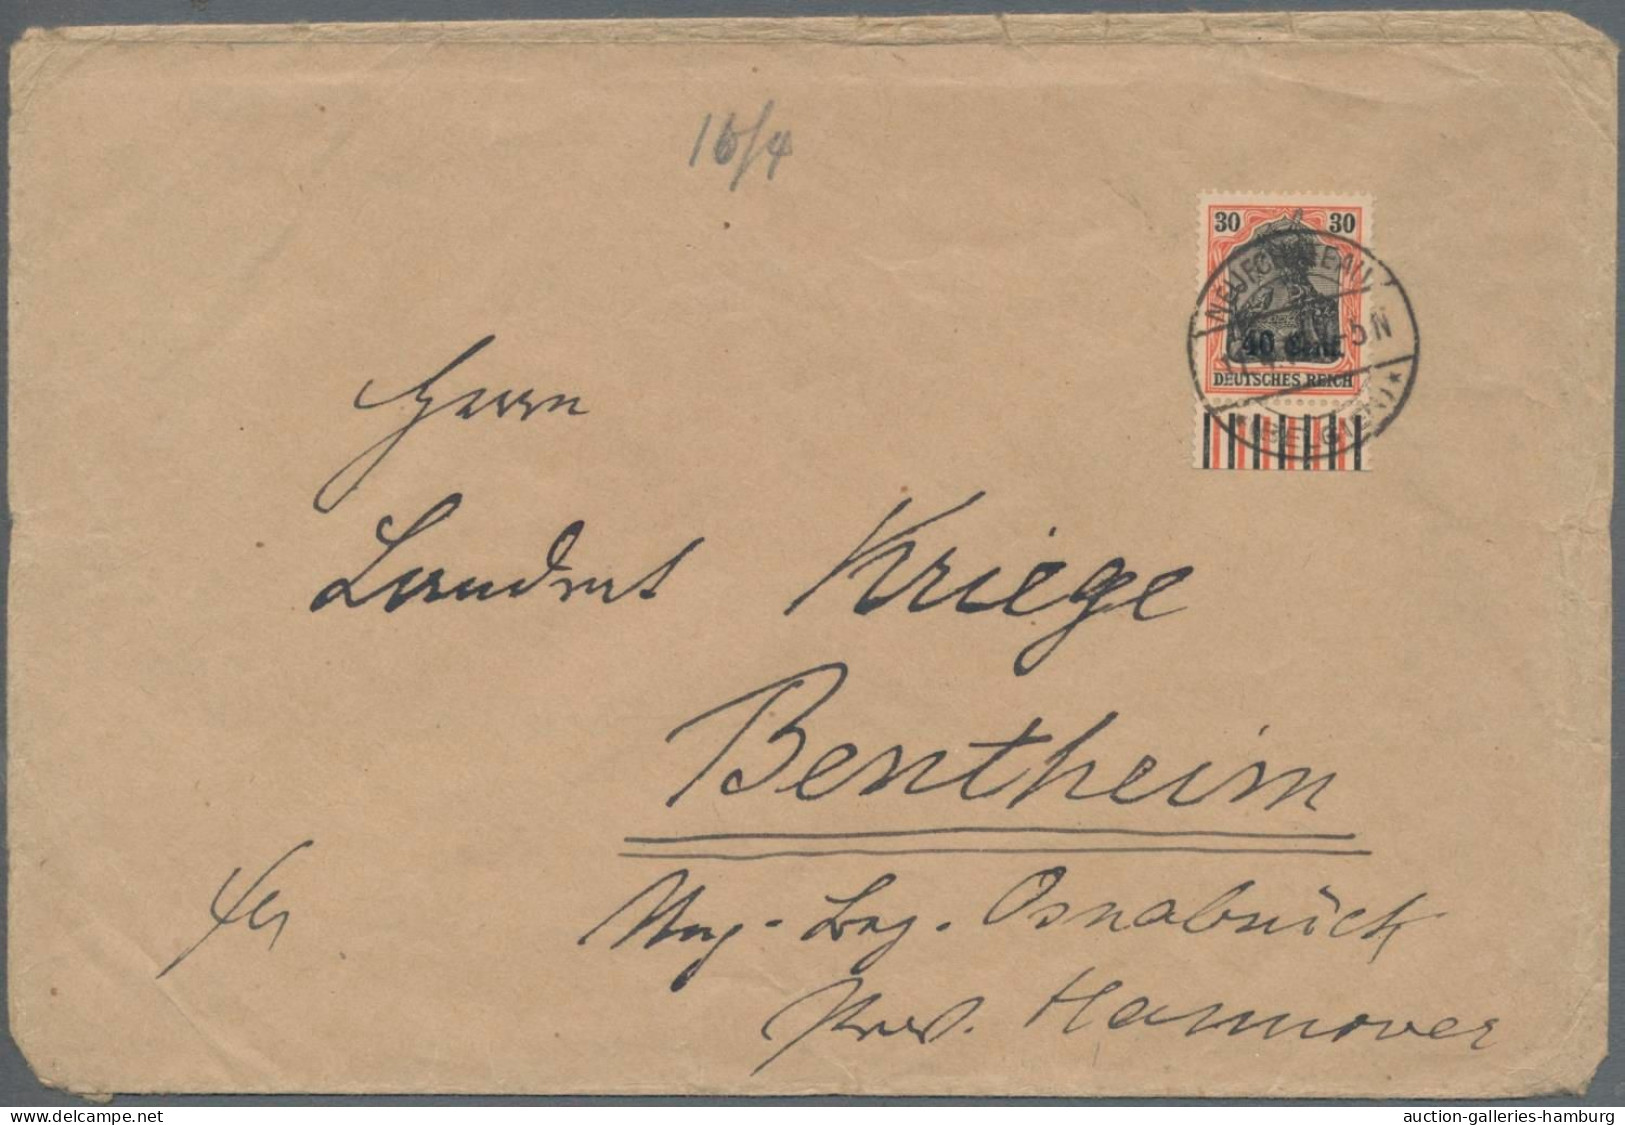 16/4
30 30
NEUFCHATEAU
40 Cent.
5-N
DEUTSCHES REICH
(BELGIEN) *
Herrn
Landrat Kriege
Bentheim
Reg.-Bez. Osnabrück
Prov. Hannover
delcampe.net
auction-galleries-hamburg